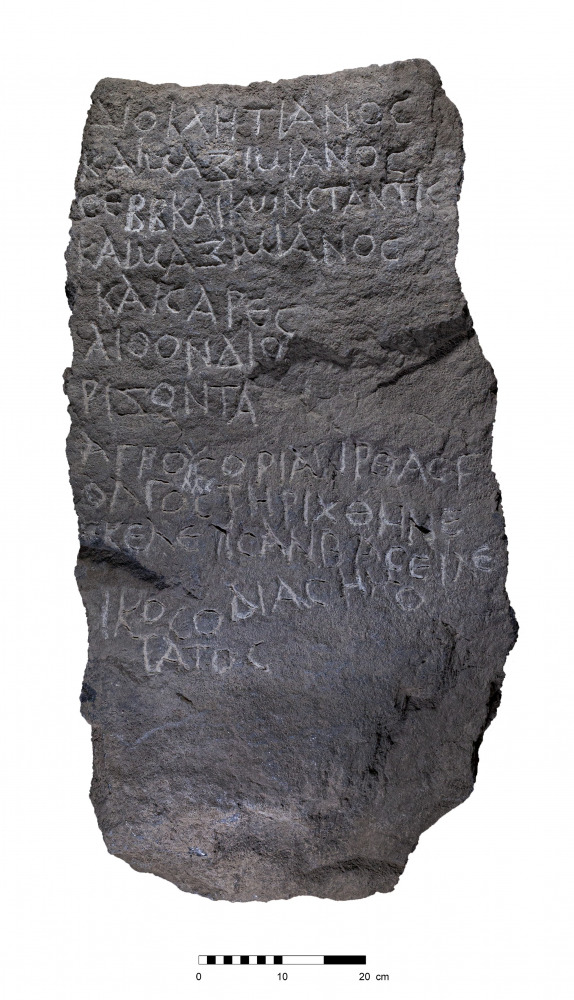 ΔΙΟΚΛΗΤΙΑΝΟϹ
ΚΑΙ ΜΑΞΙΜΙΑΝΟϹ
ϹΕΒΒ ΚΑΙ ΚΩΝϹΤΑΝΤΙϹ
ΚΑΙ ΜΑΞΙΜΙΑΝΟϹ
ΚΑΙϹΑΡΕϹ
ΛΙΘΟΝ ΔΙΟ
ΡΙΖΟΝΤΑ
ΑΓΡΟΥϹ ΟΡΙΑ
ϹΤΗΡΙΧΘΗΝΕ
ΕΚΕΛΕΥϹΑΝ
ΔΙΑϹΗΜΟ
ΤΑΤΟϹ
0 10 20 cm